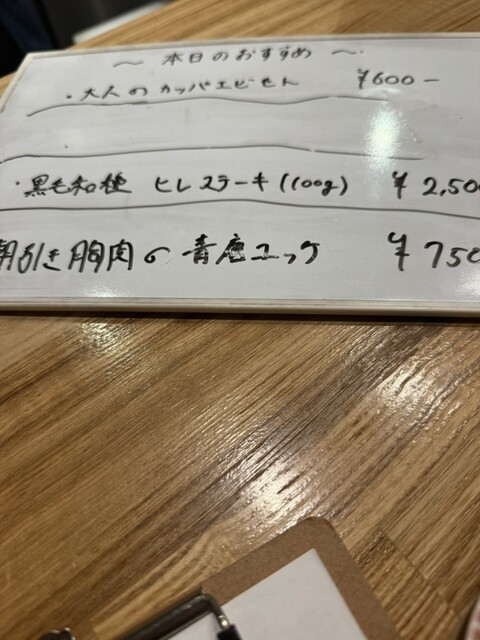 ～ 本日のおすすめ ～
・大人のカッパエビセン ¥600-
・黒毛和種 ヒレステーキ(100g) ¥2,500
朝引き胸肉の青唐ユッケ ¥750